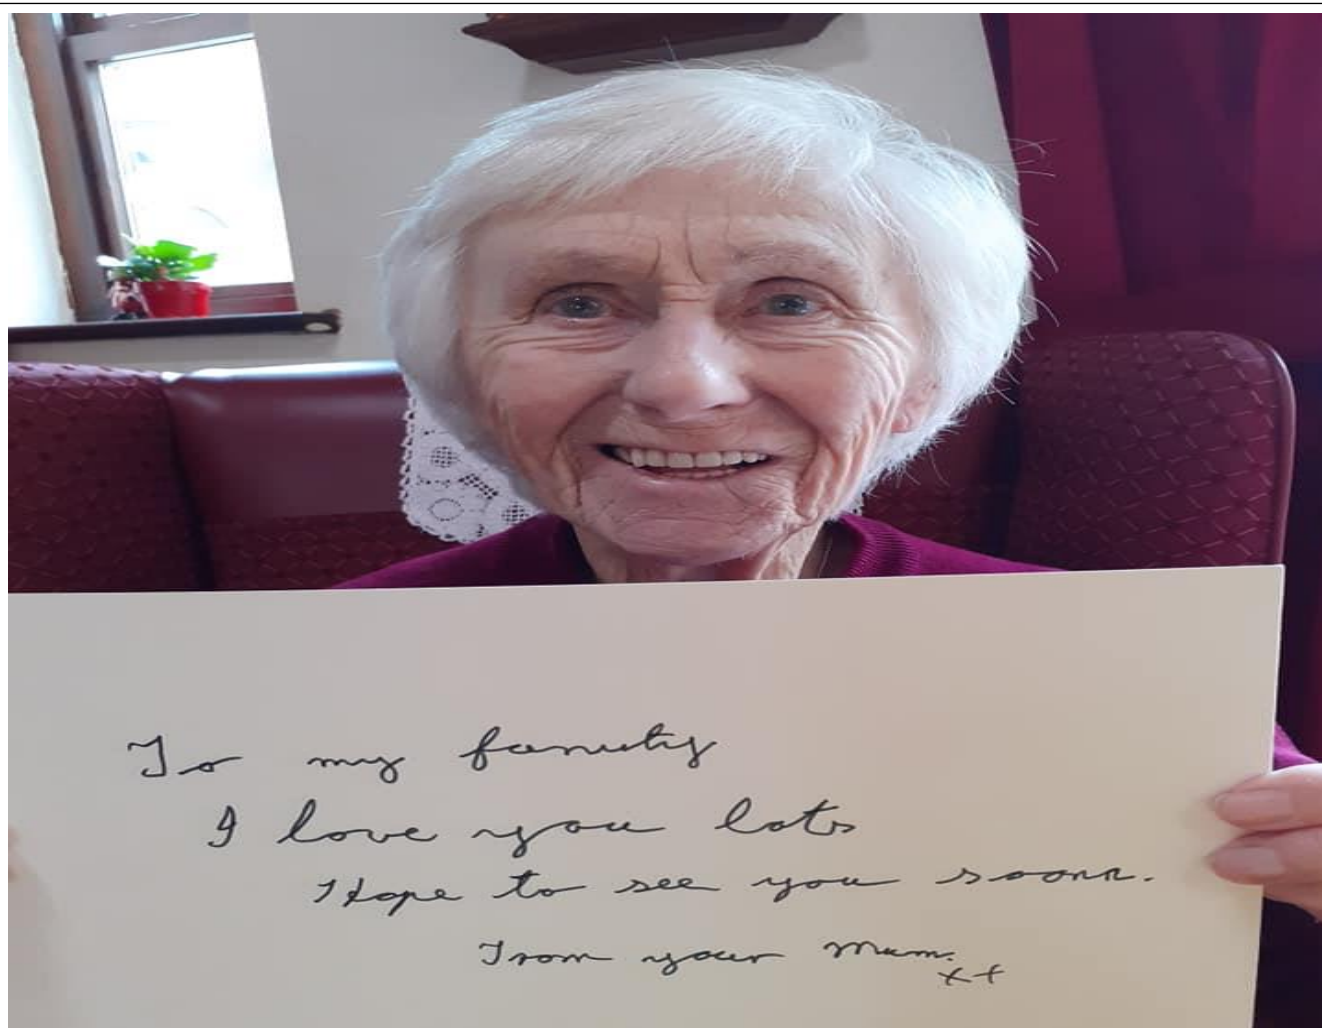 To my family
I love you lots
Hope to see you soon.
From your Mum.
xx